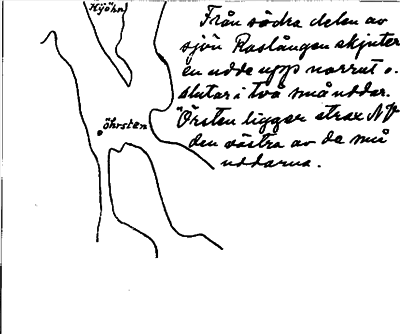 Hjöhn
Från södra delen av
sjön Raslången skjuter
en udde upp norrut o.
slutar i två små uddar.
"Örsten ligger strax NV
den västra av de små
uddarna.
Öhrsten